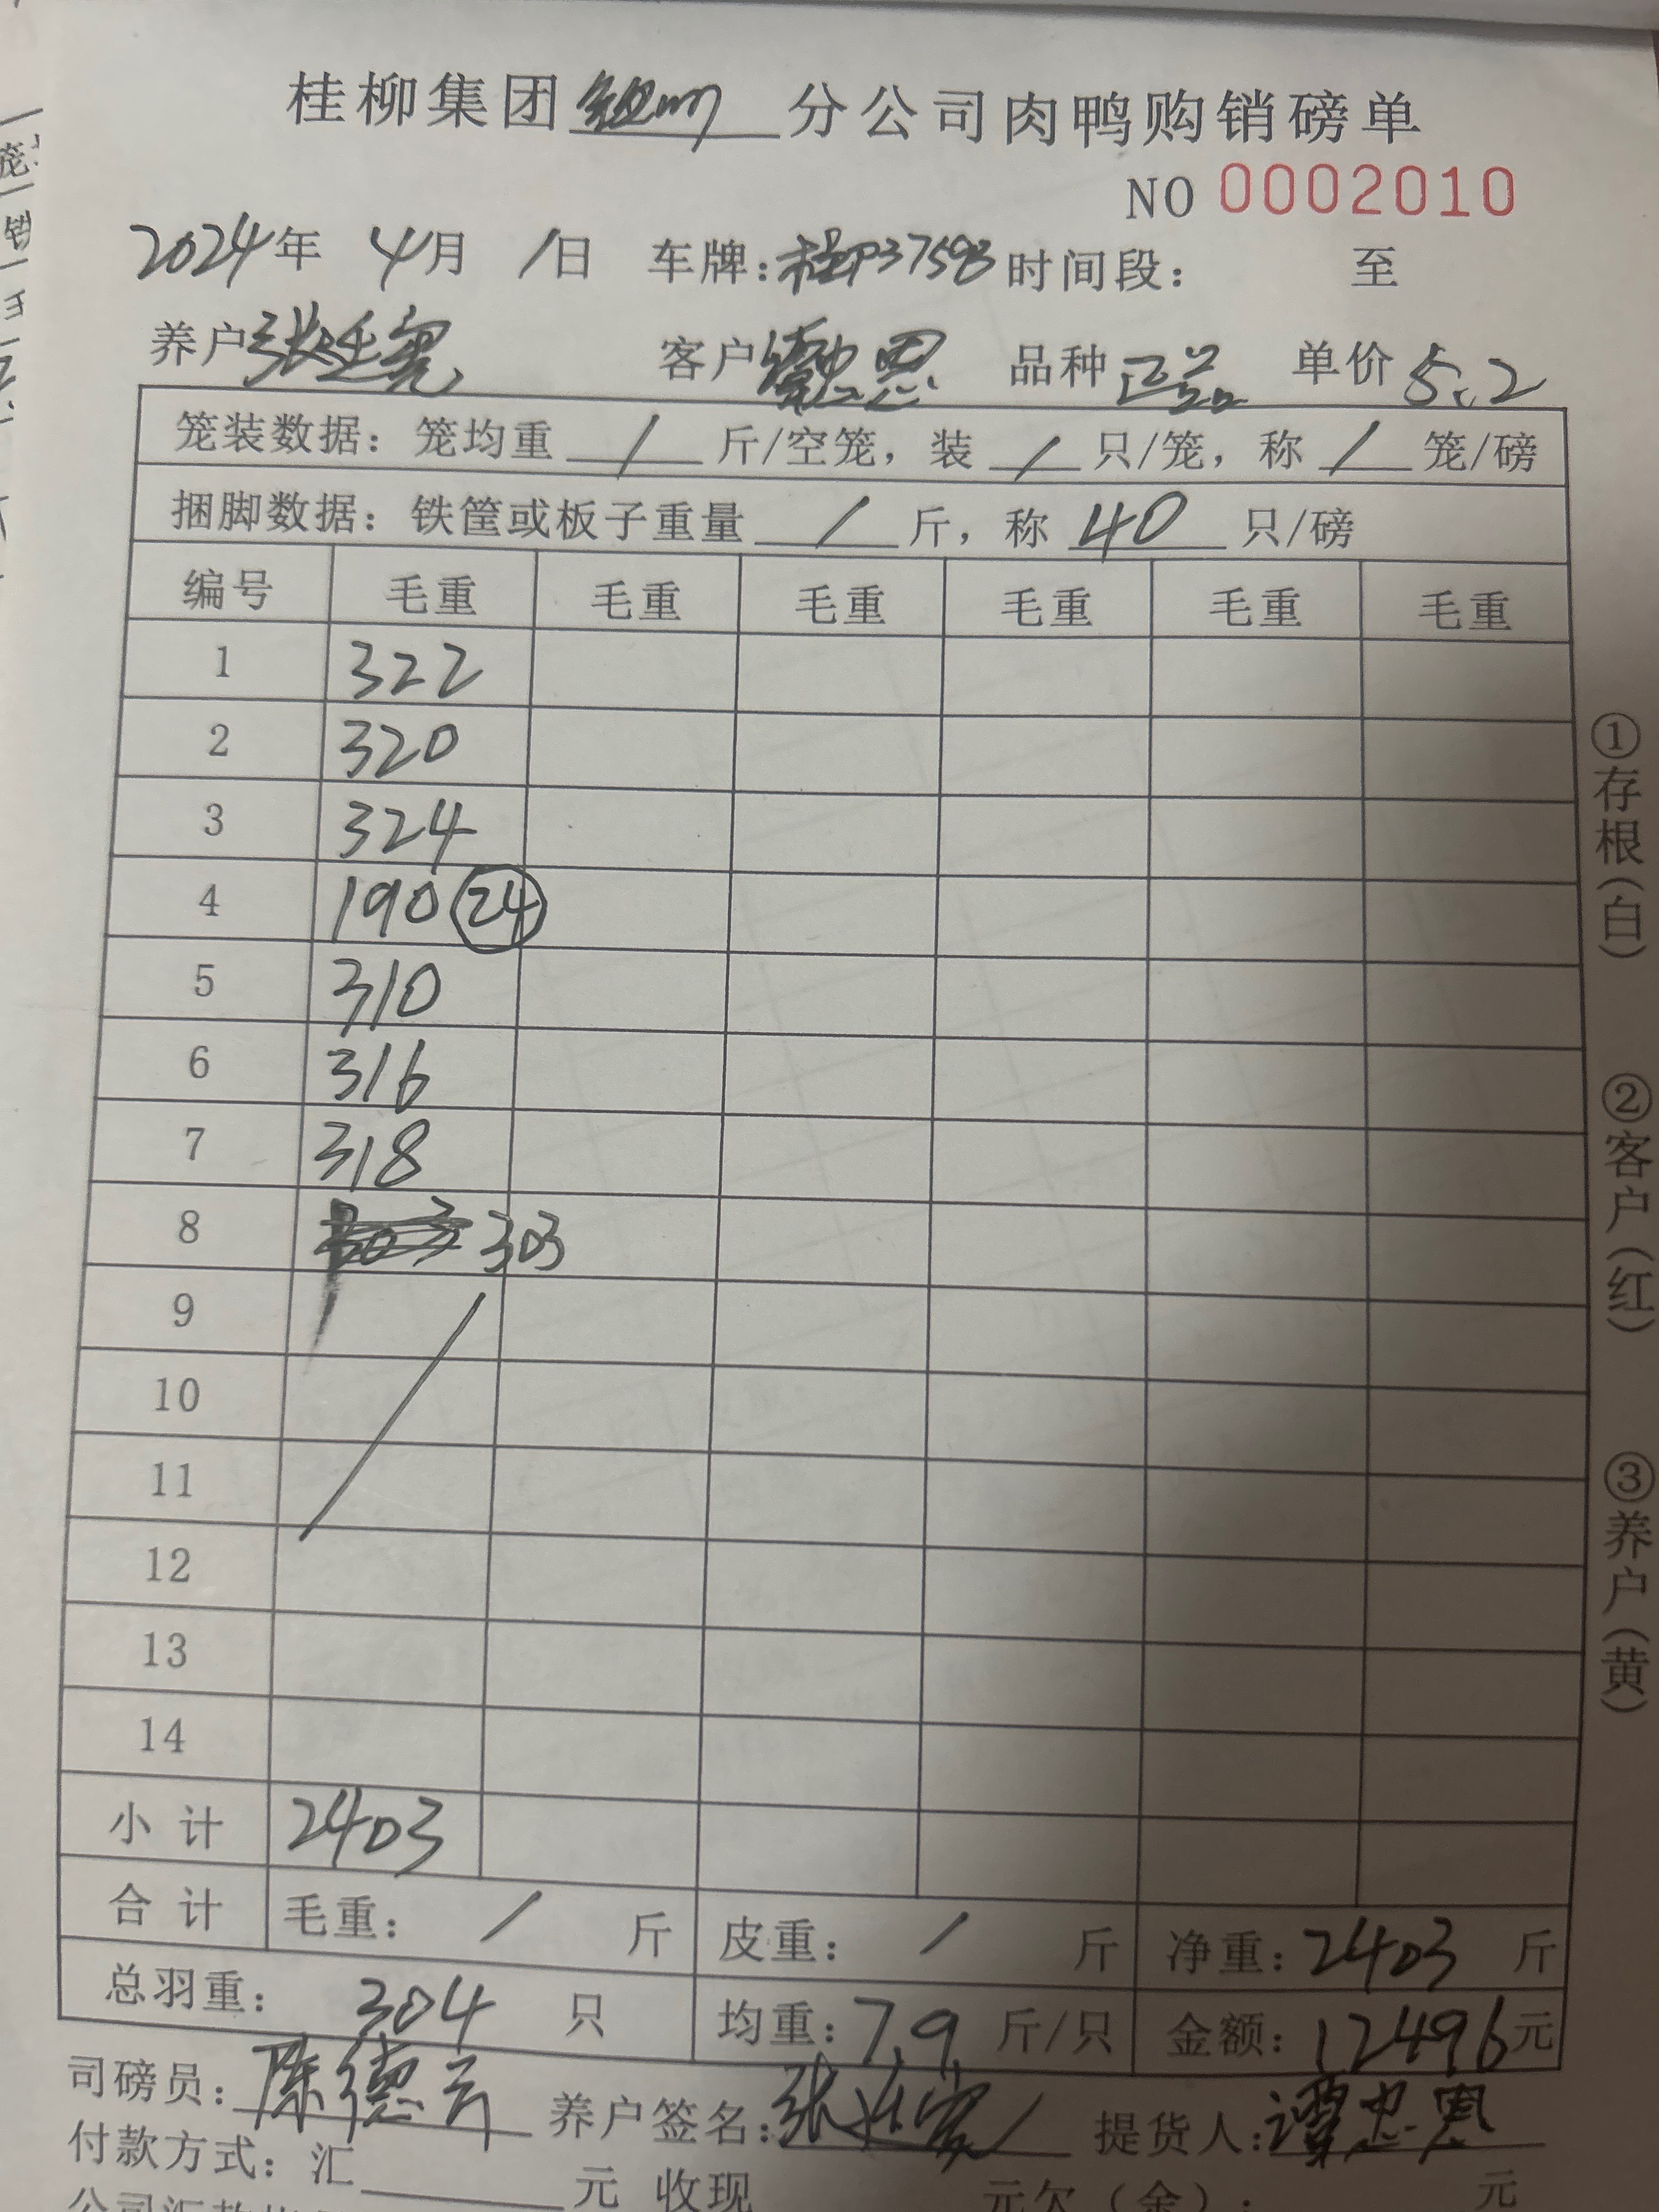 桂柳集团 分公司肉鸭购销磅单
NO 0002010
2024年 4月 1日 车牌：桂P37593 时间段： 至
养户 张 客户 覃忠恩 品种 正品 单价 5.2
笼装数据：笼均重 / 斤/空笼，装 / 只/笼，称 / 笼/磅
捆脚数据：铁筐或板子重量 / 斤，称 40 只/磅
编号 毛重 毛重 毛重 毛重 毛重 毛重
1 322
2 320
3 324
4 190 24
5 310
6 316
7 318
8 303
9
10
11
12
13
14
小计 2403
合计 毛重： / 斤 皮重： / 斤 净重：2403 斤
总羽重： 304 只 均重：7.9 斤/只 金额：12496元
司磅员：陈德 养户签名：张 提货人：谭忠恩
付款方式：汇 元 收现 元欠（余）： 元
①存根（白）
②客户（红）
③养户（黄）